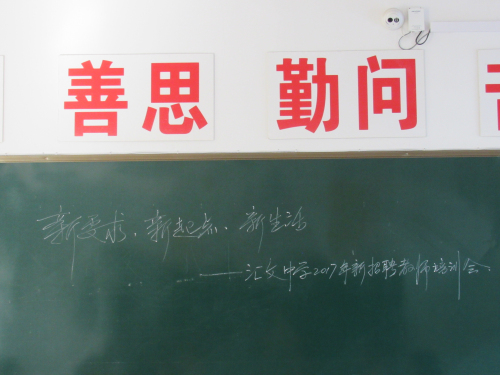 善思 勤问
新要求、新起点、新生活
——汇文中学2017年新招聘教师培训会